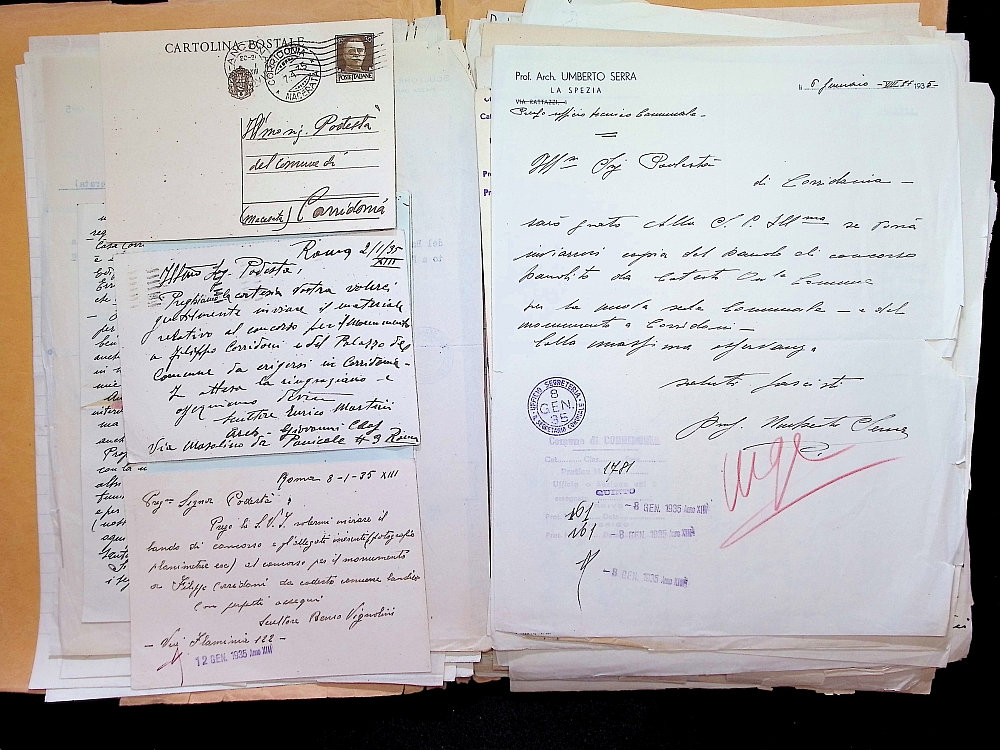 CARTOLINA POSTALE
CORRIDONIA
MACERATA
POSTE ITALIANE
Ill'mo sig. Podestà
del comune di
(Macerata) Corridonia
Roma 2/1/35
XIII
Ill/mo Sig. Podestà,
Preghiamo la cortesia Vostra volerci
gentilmente inviare il materiale
relativo al concorso per il Monumento
a Filippo Corridoni e del Palazzo del
Comune da erigersi in Corridonia -
In attesa la ringraziamo e
ossequiamo
Scultore Enrico Martini
Arch - Giovanni
Via Masolino da Panicale # 9 Roma
Roma 8-1-35 XIII
Preg.mo Signor Podestà,
Prego la S.V.I. volermi inviare il
bando di concorso e gli allegati inerenti (fotografie
planimetrie ecc) al concorso per il monumento
a Filippo Corridoni da codesto comune bandito
Con perfetti ossequi
Scultore Benso Vignolini
- Via Flaminia 122 -
12 GEN. 1935 Anno XIII
Prof. Arch. UMBERTO SERRA
LA SPEZIA
VIA RATTAZZI,
Presso ufficio tecnico Comunale -
li 6 Gennaio 1935-
Ill.mo Sig Podestà
di Corridonia -
sarò grato alla S. V. Ill.ma se vorrà
inviarmi copia del bando di concorso
bandito da codesto On.le Comune
per la nuova sede Comunale - e del
monumento a Corridoni -
Colla massima osservanza.
saluti fascisti
Prof. Umberto Serra
UFFICIO SEGRETERIA
8
GEN.
35
Comune di CORRIDONIA
1781
QUINTO
161
- 8 GEN. 1935 Anno XIII
161
- 8 GEN. 1935 Anno XIII
- 8 GEN. 1935 Anno XIII
urge